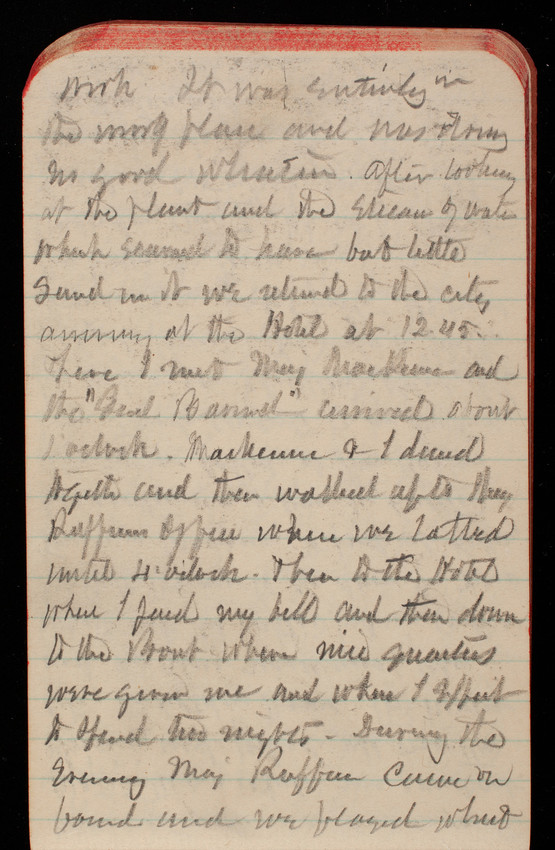 work It was entirely in
the wrong place and was doing
no good whatever. After looking
at the plant and the stream of water
which seemed to have but little
sand in it we returned to the city
arriving at the Hotel at 12.45.
Here I met Maj Mackenzie and
the "General Barnard" arrived about
1 o'clock. Mackenzie & I dined
together and then walked up to Maj
Ruffner Office where we talked
until 4 o'clock. Then to the Hotel
where I paid my bill and then down
to the Boat where nice quarters
were given me and where I expect
to spend two nights - During the
Evening Maj Ruffner came on
board and we played whist